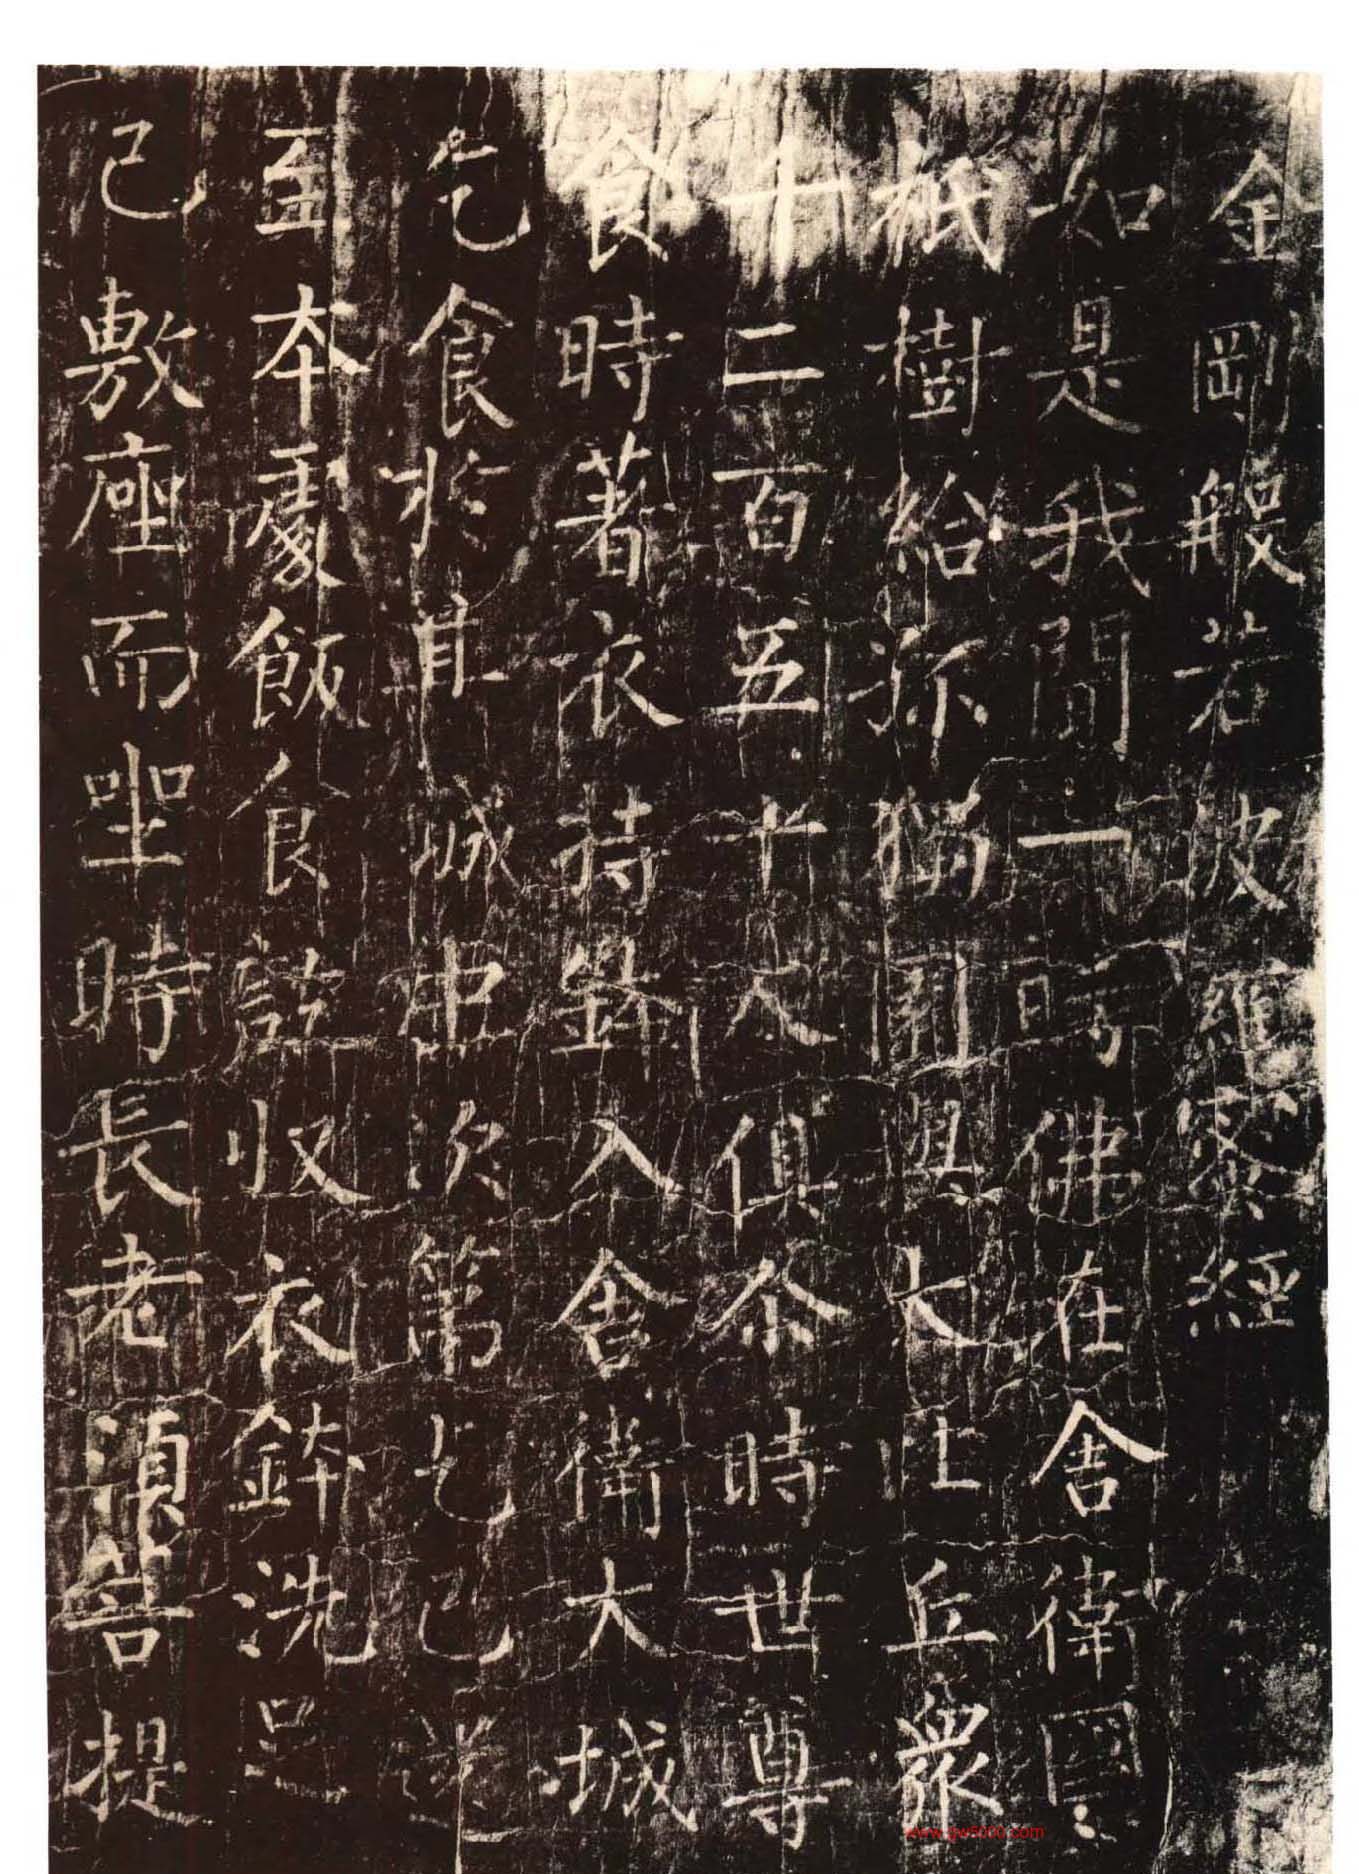 金剛般若波羅蜜經
如是我聞一時佛在舍衛國
祇樹給孤獨園與大比丘衆
千二百五十人俱尒時世尊
食時著衣持鉢入舍衛大城
乞食於其城中次第乞已還
至本處飯食訖收衣鉢洗足
已敷座而坐時長老須菩提
www.gw5000.com